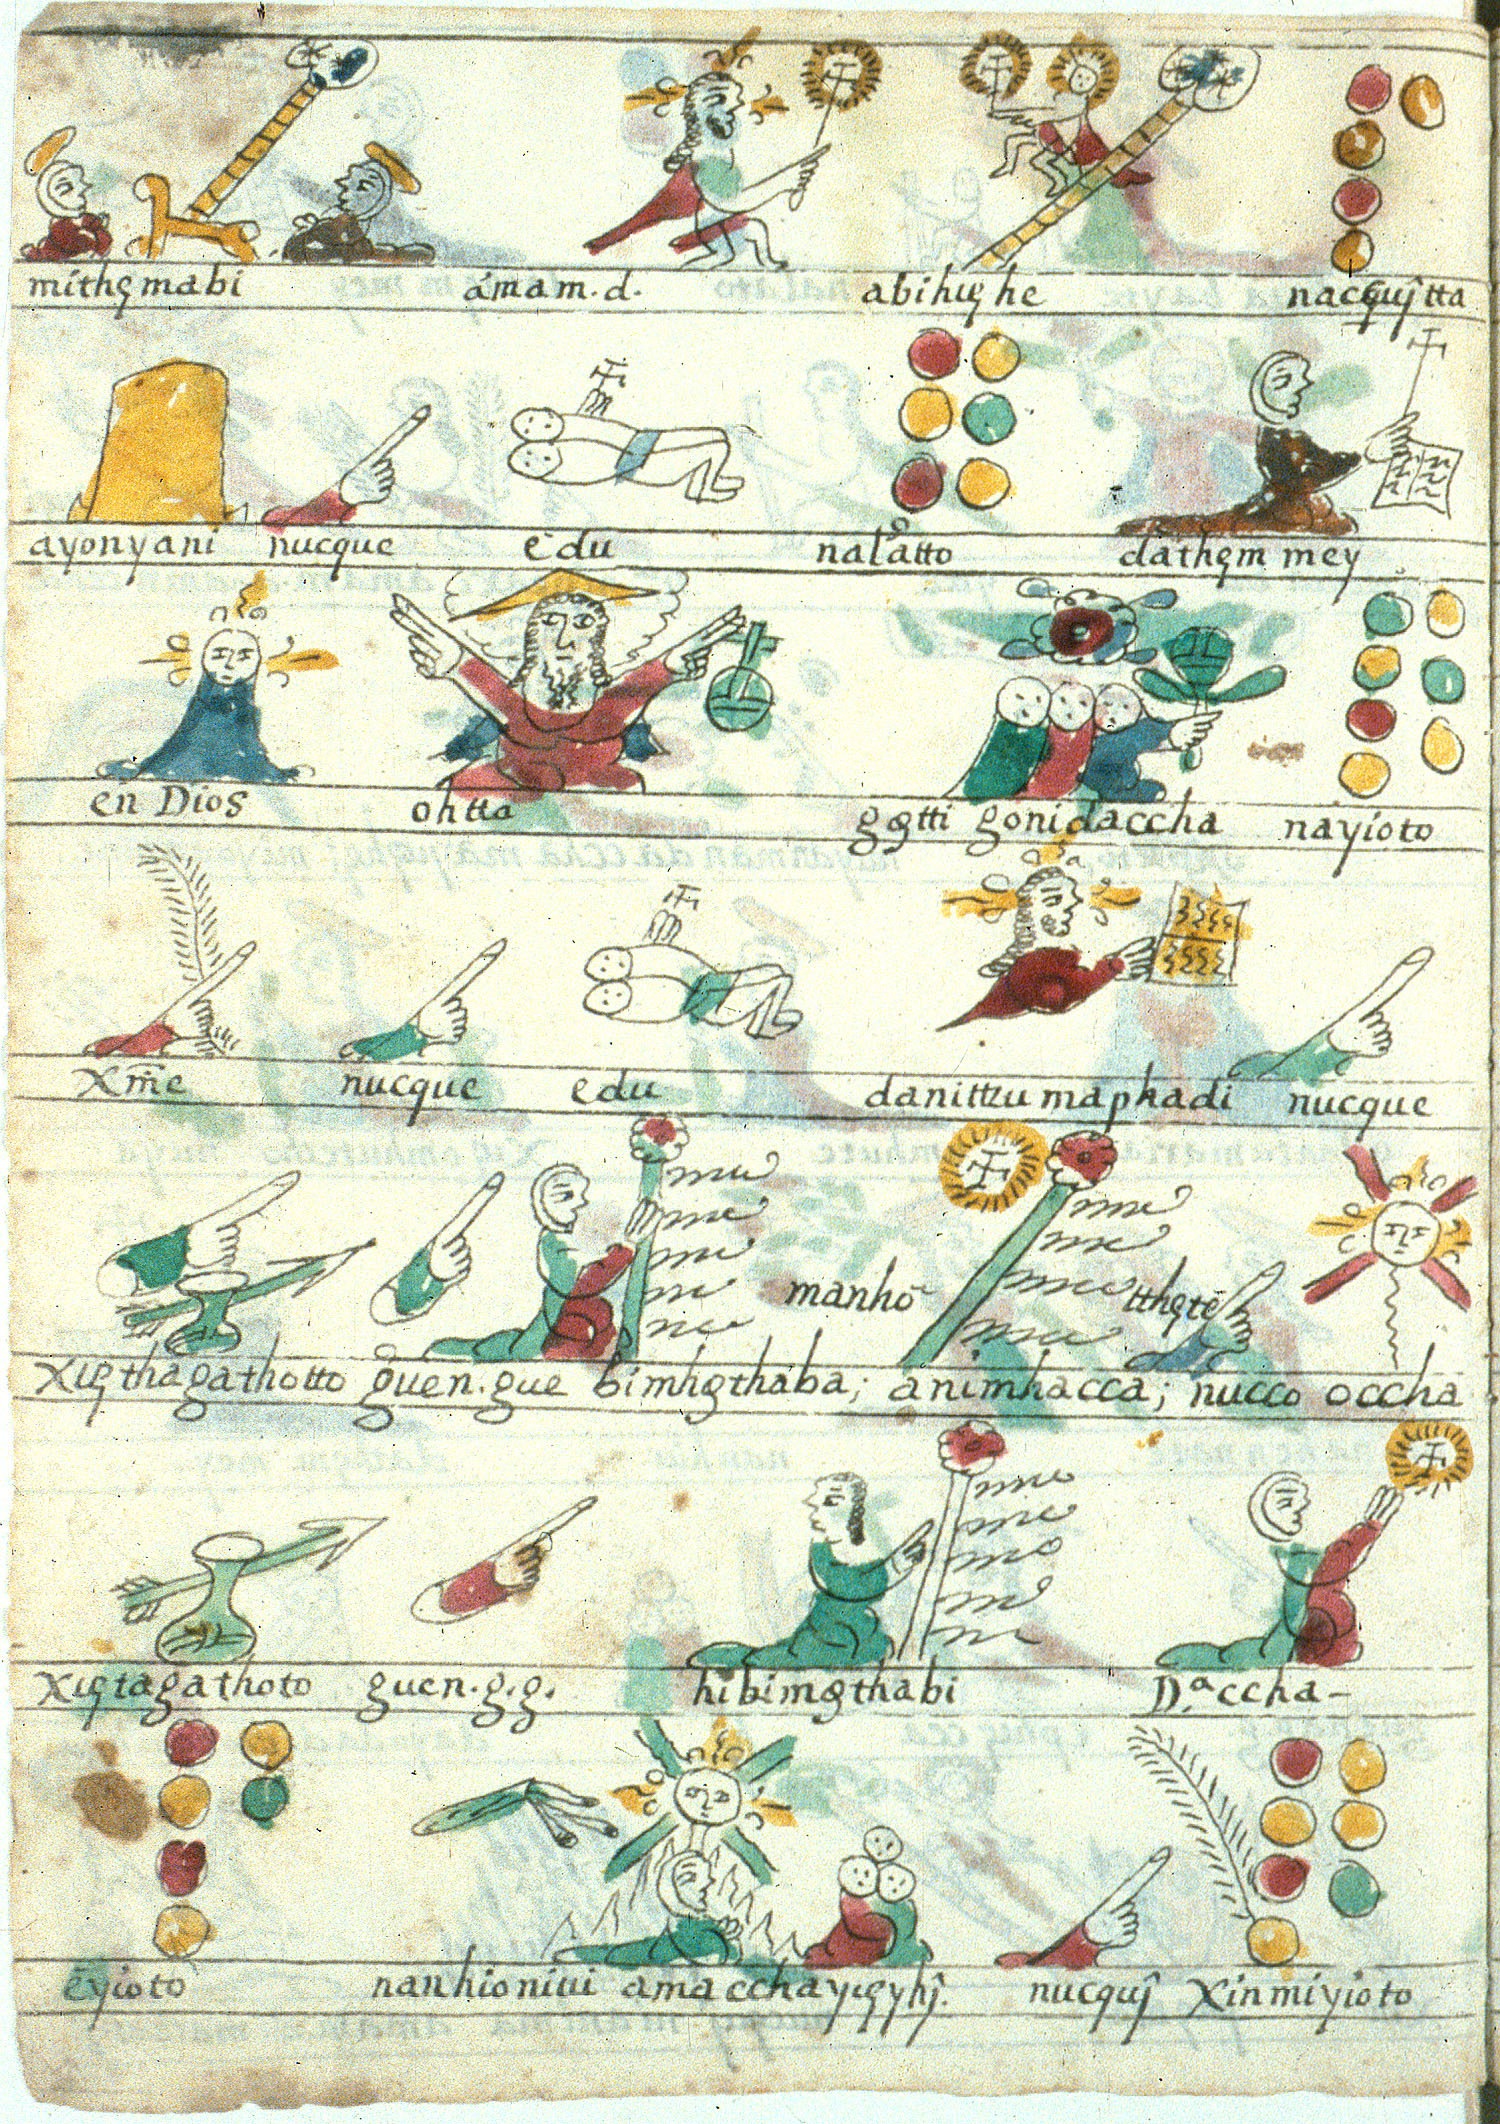 mithę mabi ámam. d. abihųę he nacquĵtta
ayonyani nucque ēdu nalatto dathęm mey
en Dios ohtta gǫtti gonidaccha nayioto
Xm̄e nucque edu danittzu maphadi nucque
manhō tthętē
Xięthagathotto guen.gue bimhǫthaba; animhacca; nucco occha
Xiętagathoto guen.g.g. hibimǫthabi D.ª ccha-
ēyioto nanhioniui amacchayięyhĵ. nucquĵ Xinmiyioto